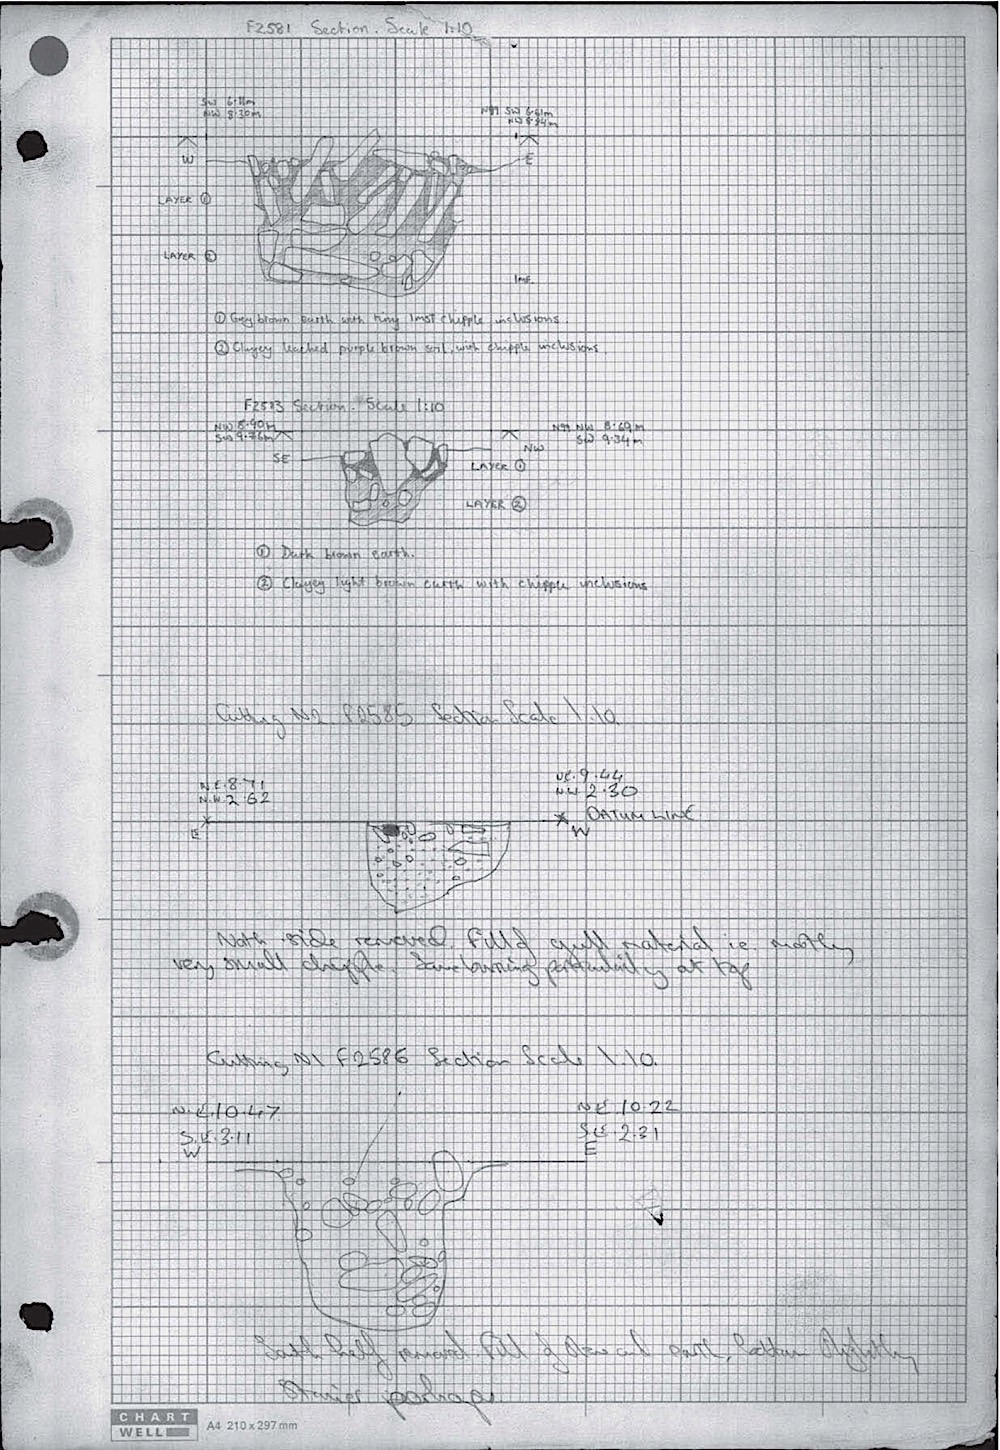 F2581 Section. Scale 1:10
SW 6.11m
NW 8.30m
N99 SW 6.61m
NW 8.34m
W
E
LAYER ①
LAYER ②
① Grey brown earth with tiny lmst chipple inclusions.
② Clayey leached purple brown soil, with chipple inclusions.
F2583 Section. Scale 1:10
NW 8.90m
SW 9.76m
N99 NW 8.69m
SW 9.34m
SE
NW
LAYER ①
LAYER ②
① Dark brown earth.
② Clayey light brown earth with chipple inclusions
Cutting N2 F2585 Section Scale 1:10.
N.E. 8.71
N.W. 2.62
NE. 9.44
NW 2.30
E
W
DATUM LINE
North side removed. Fill of material ie mostly
very small chipple. Some burning particularily at top
Cutting N1 F2586 Section Scale 1:10.
N.E. 10.47
S.E. 3.11
W
NE 10.22
SE 2.31
E
South half removed. Fill of stone and earth, bottom slightly
stonier perhaps
CHART
WELL
A4 210 x 297 mm